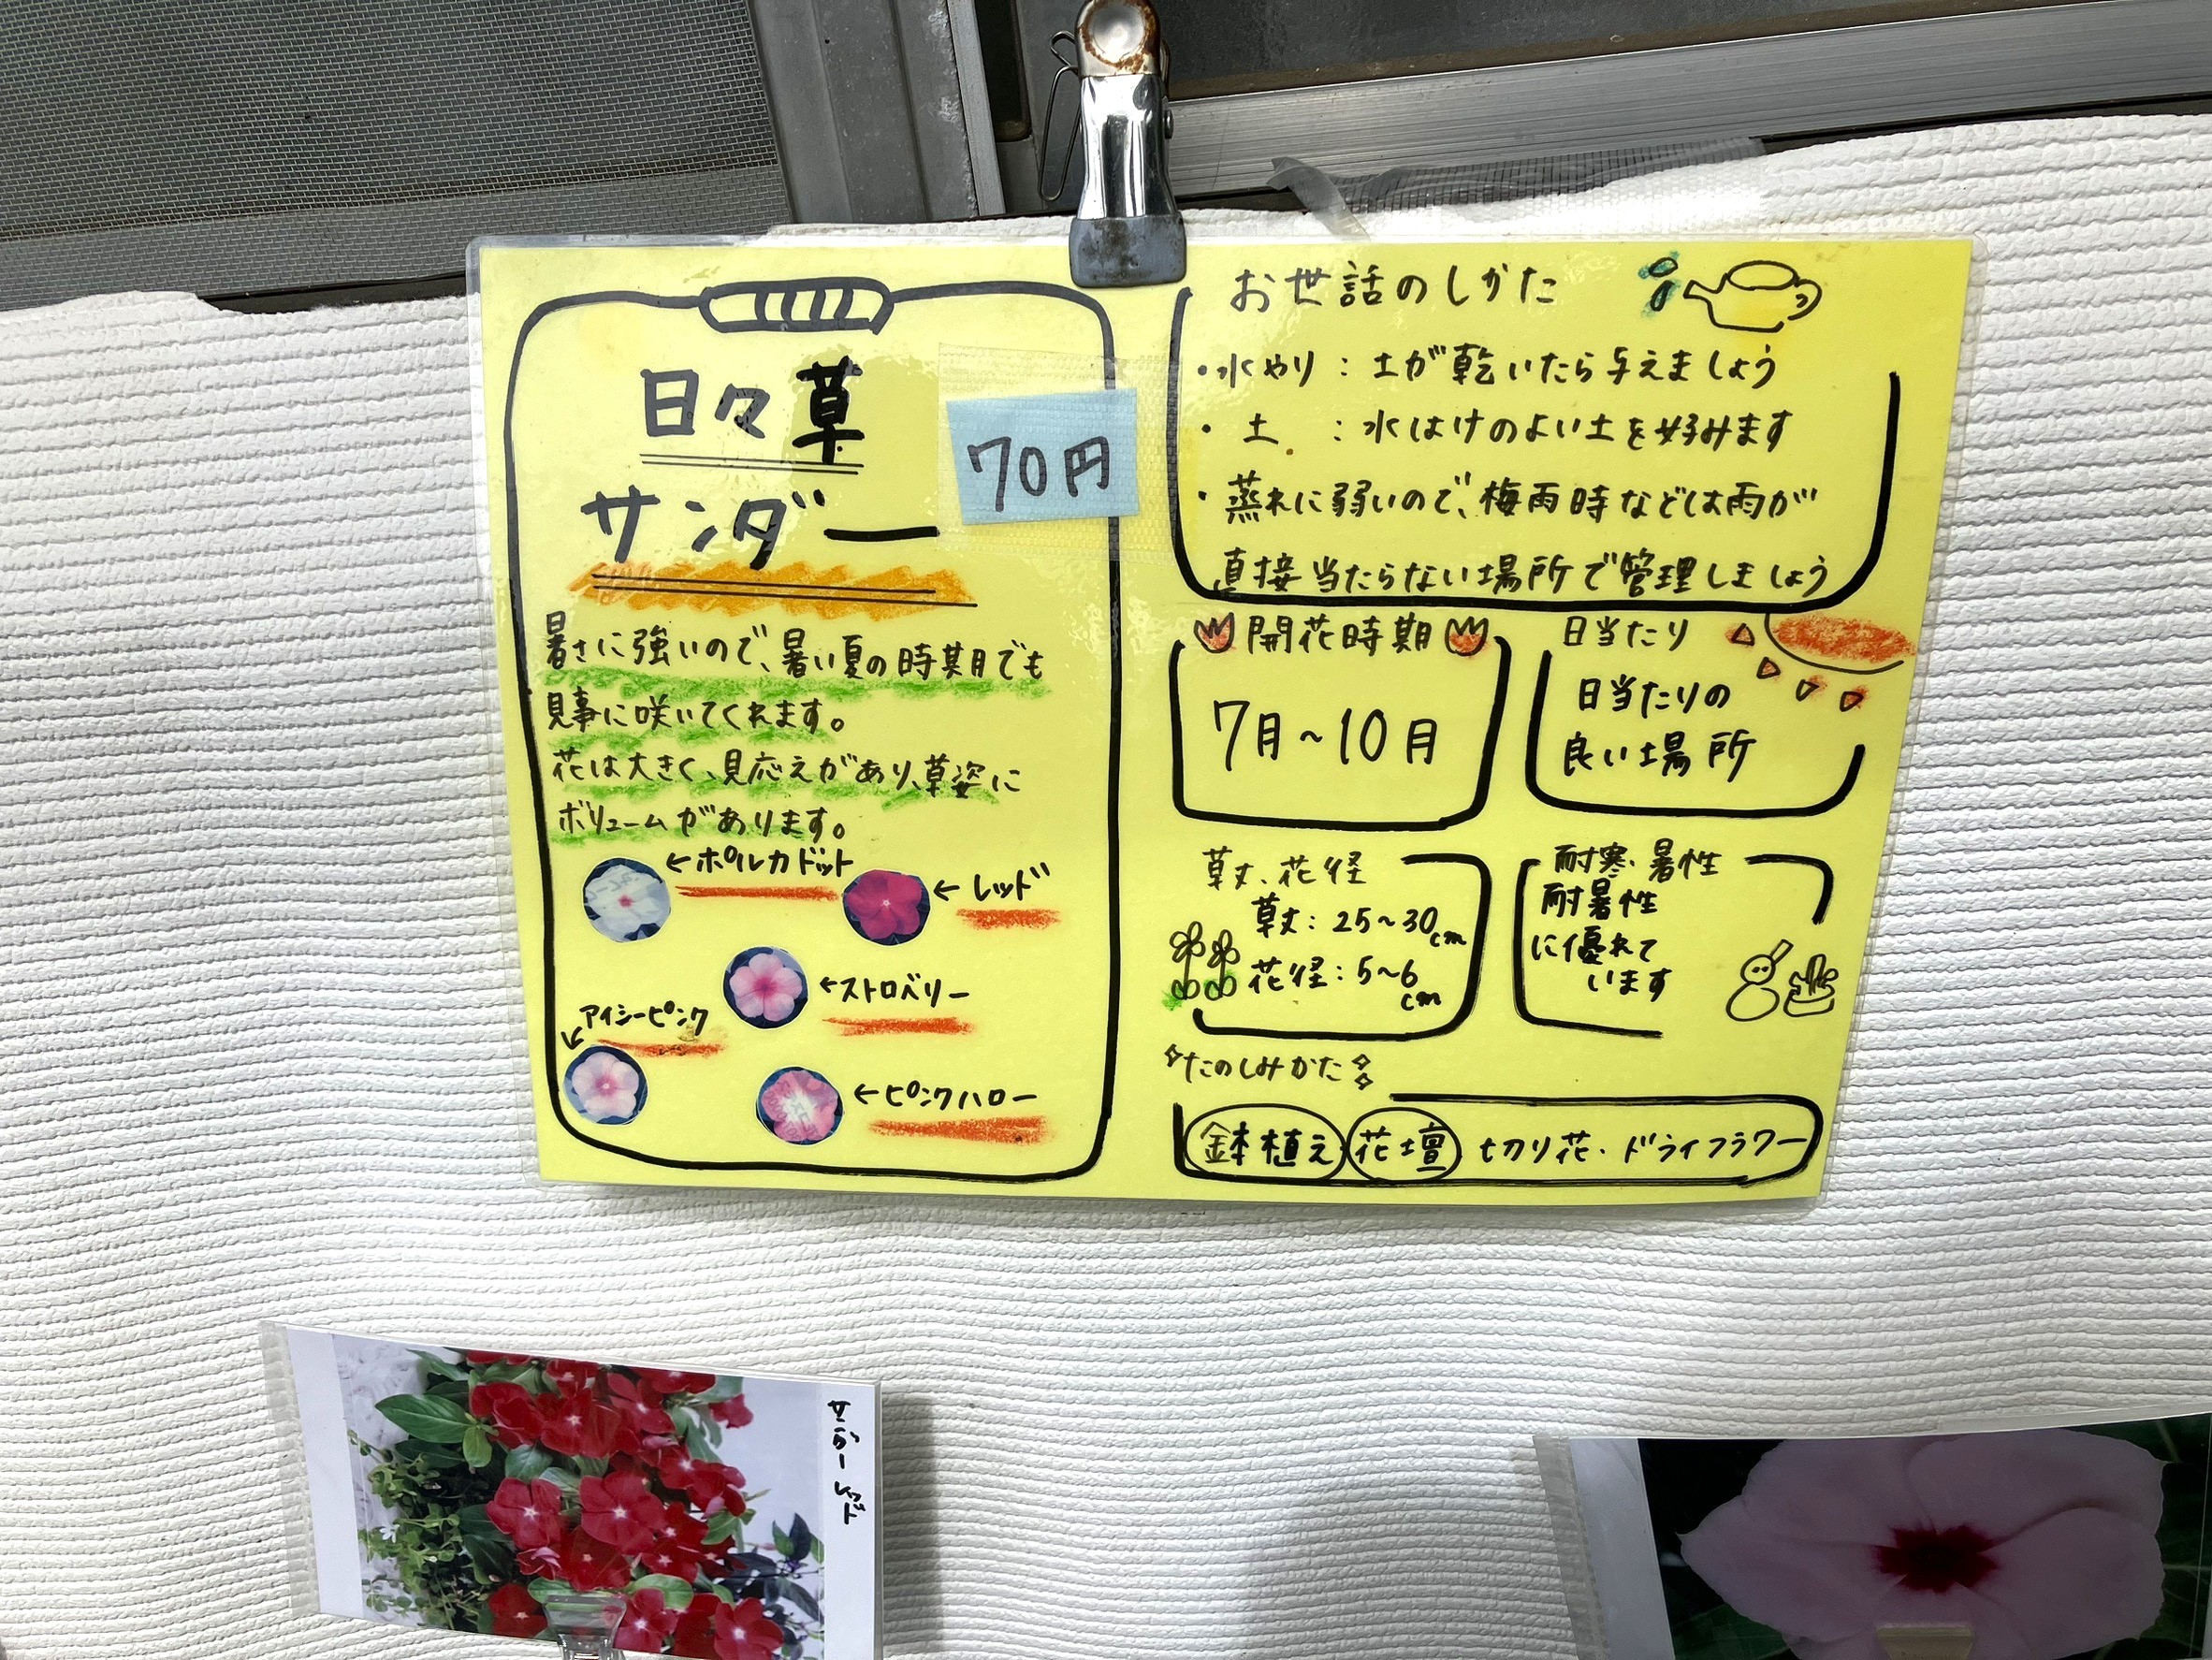 日々草
サンダー
70円
暑さに強いので、暑い夏の時期でも
見事に咲いてくれます。
花は大きく、見応えがあり、草姿に
ボリュームがあります。
←ポルカドット
←レッド
←ストロベリー
アイシーピンク
←ピンクハロー
お世話のしかた
・水やり：土が乾いたら与えましょう
・土　：水はけのよい土を好みます
・蒸れに弱いので、梅雨時などは雨が
直接当たらない場所で管理しましょう
開花時期
7月～10月
日当たり
日当たりの
良い場所
草丈、花径
草丈：25～30cm
花径：5～6cm
耐寒・暑性
耐暑性
に優れて
います
たのしみかた
鉢植え 花壇 切り花・ドライフラワー
サンダー レッド